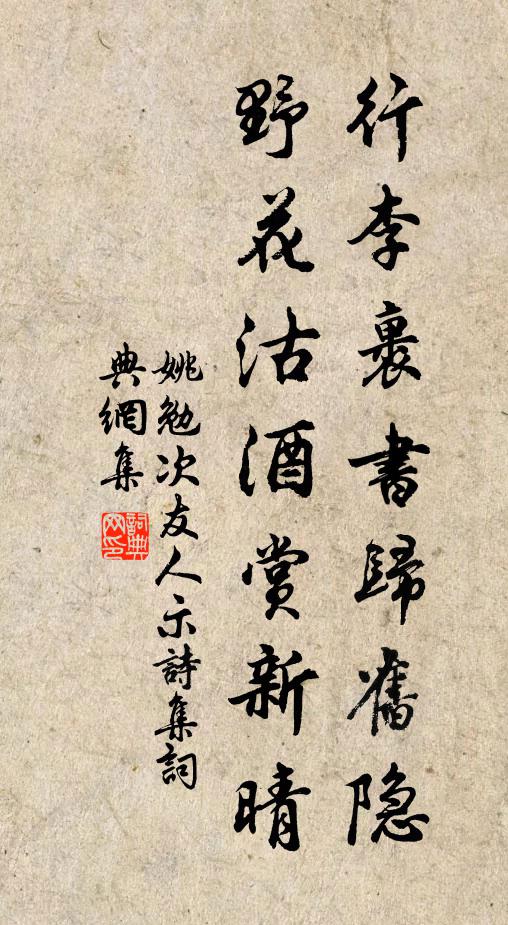 行李裹書歸舊隐
野花沽酒賞新晴
姚勉次友人示詩集詞
典網集
詞典网印